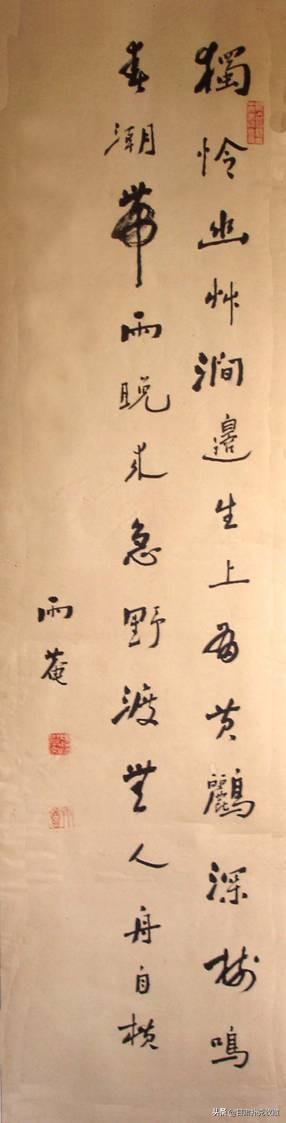 獨怜幽艸澗邊生上有黄鸝深樹鳴
春潮帶雨晚来急野渡無人舟自横
雨菴
头条